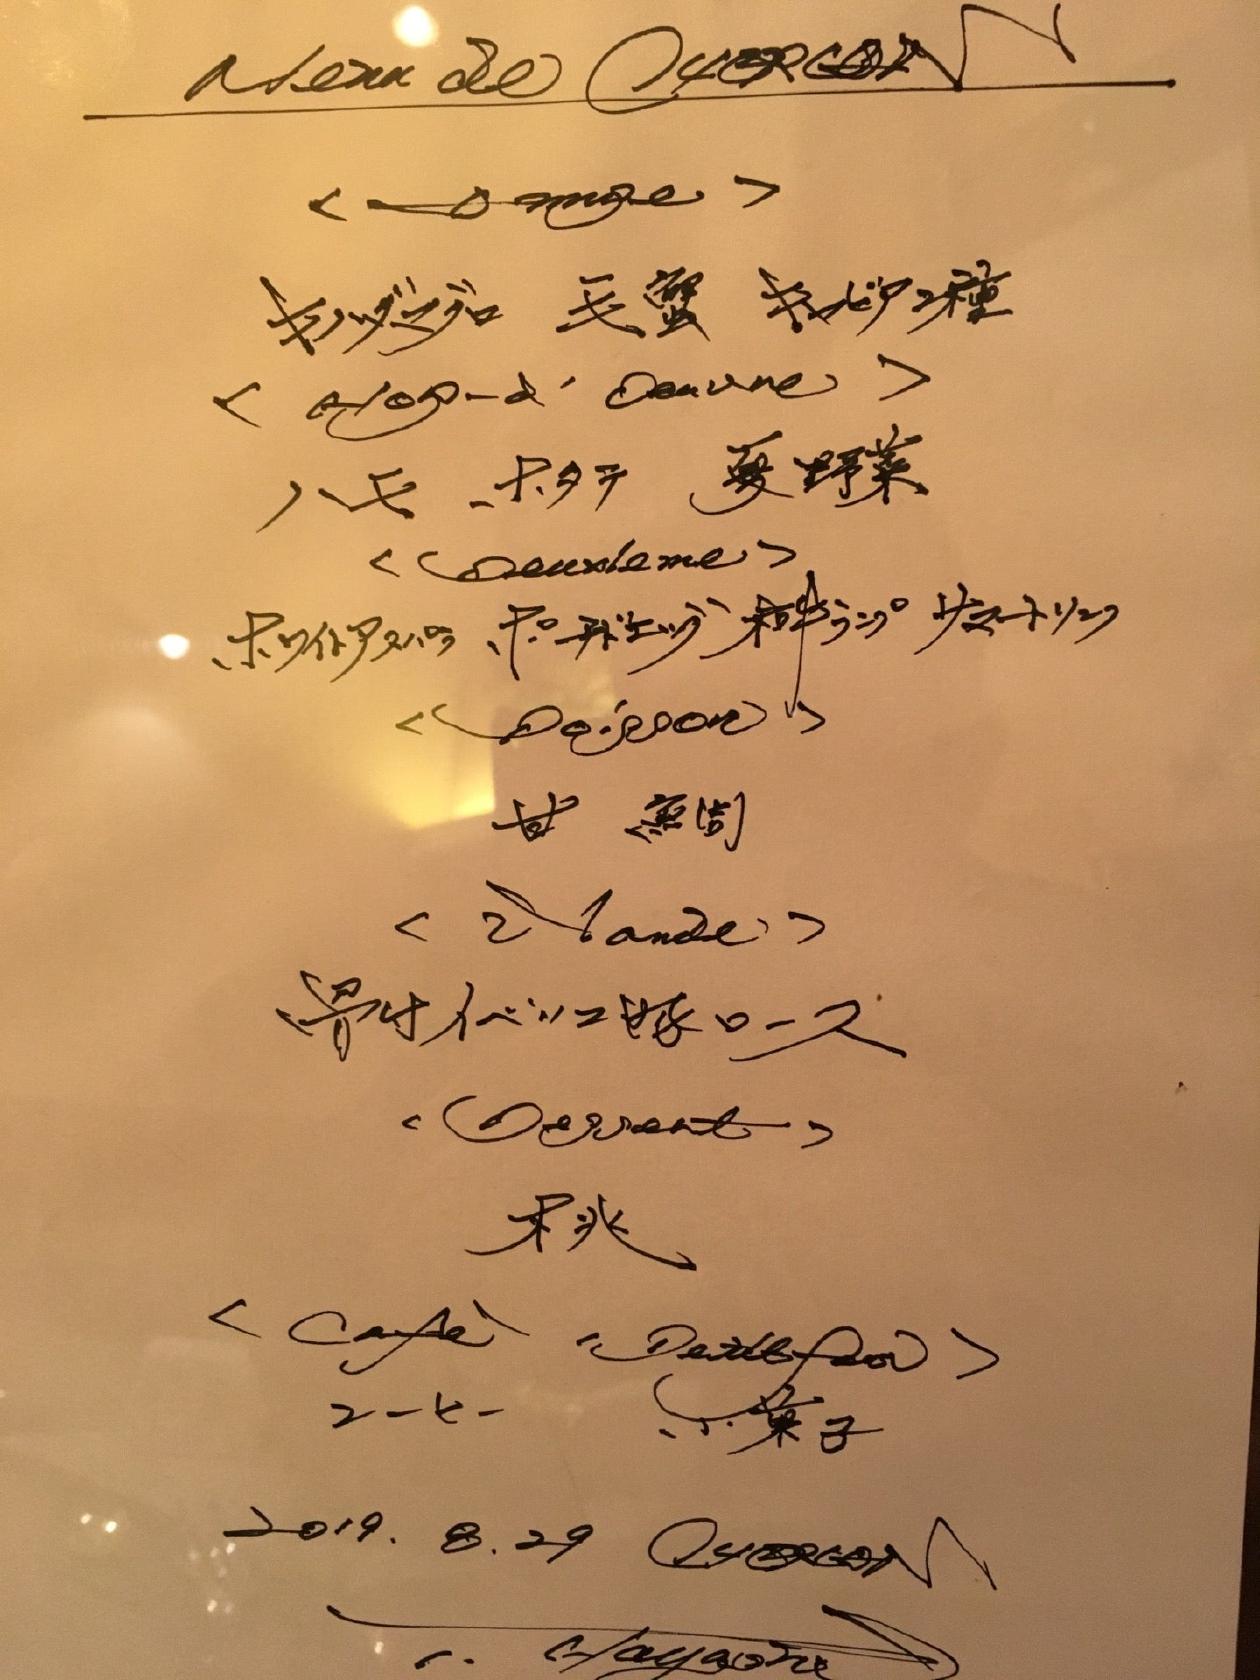 Menu de QUERCON
キハダマグロ 毛蟹 キャビア 種
<Hors-d'Oeuvre>
ハモ ホタテ 夏野菜
<Deuxieme>
ホワイトアスパラ ポーチドエッグ サマートリュフ
<Poisson>
甘
<Viande>
骨付イベリコ豚ロース
<Dessert>
桃
<Café Petit four>
コーヒー 小菓子
2019. 8. 29 QUERCON